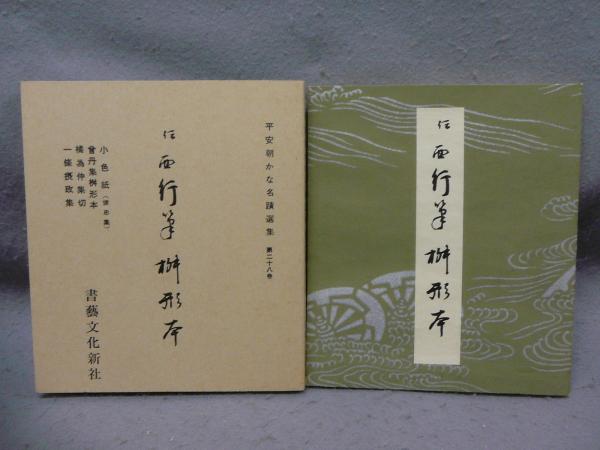 平安朝かな名蹟選集 第二十八巻
伝 西行筆 桝形本
小色紙(俊忠集)
曾丹集桝形本
橘為仲集切
一條摂政集
書藝文化新社
伝 西行筆 桝形本